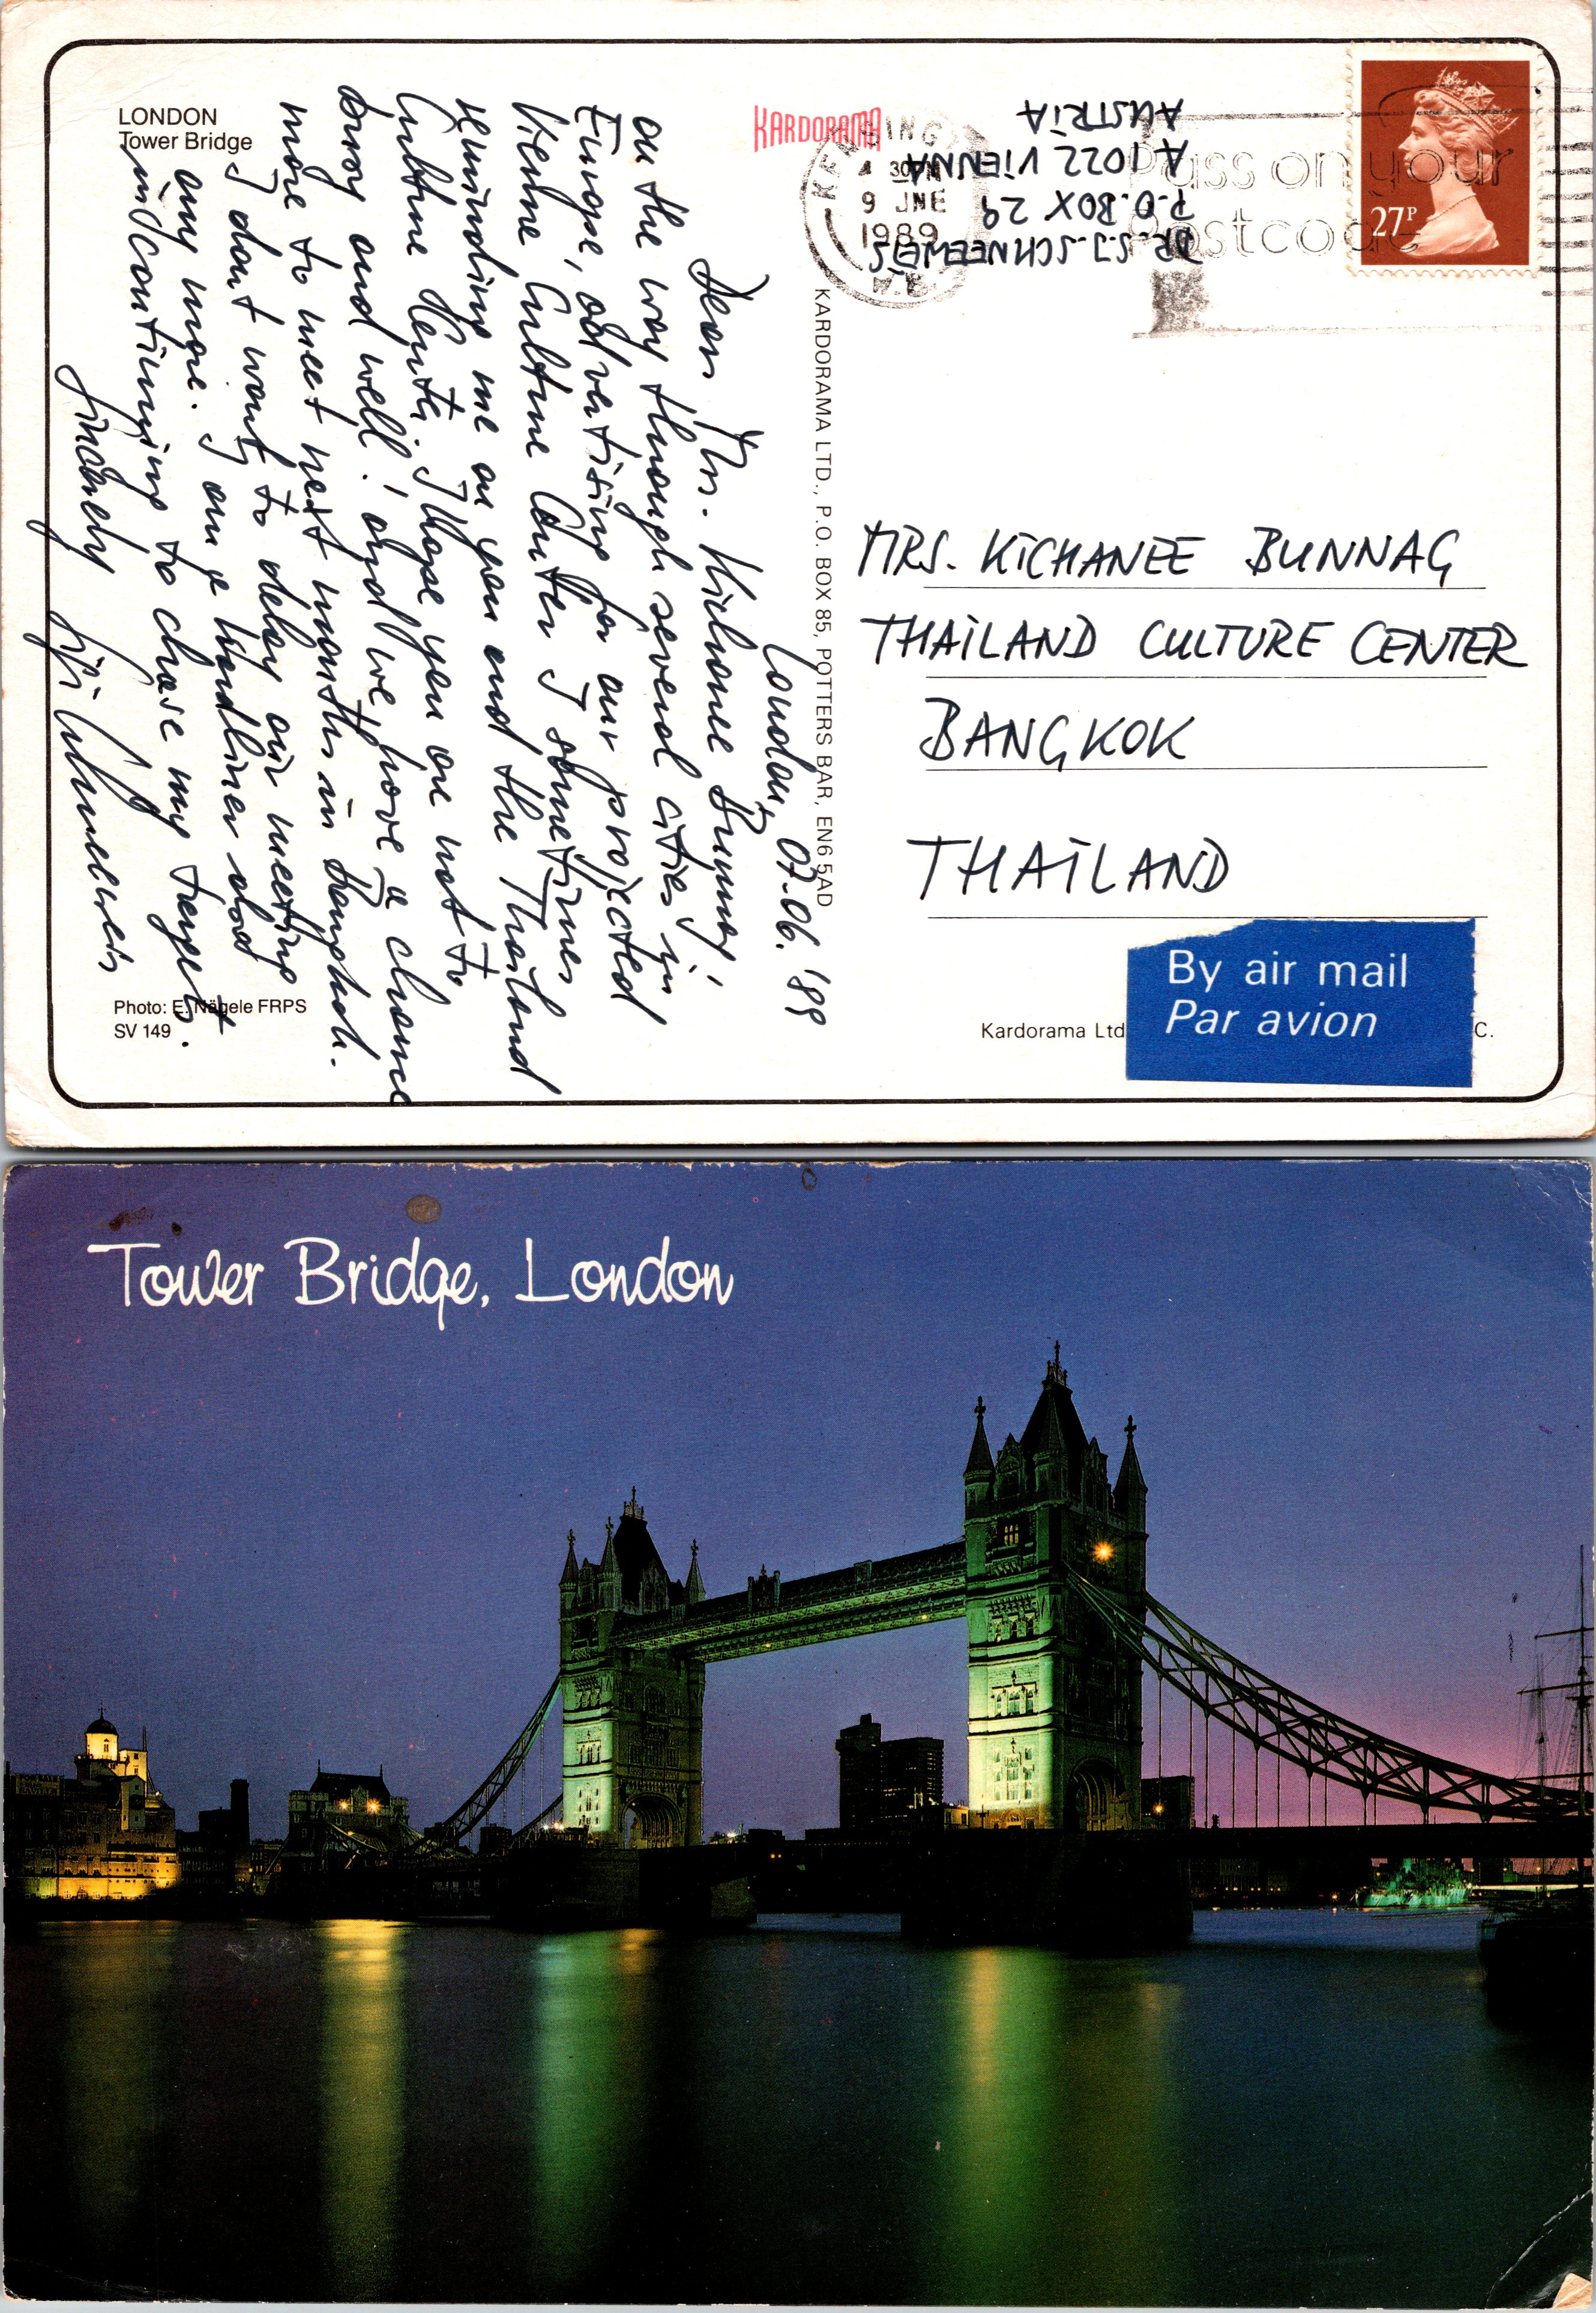 LONDON
Tower Bridge
London, 07.06.'89
Dear Mrs. Kichanee Bunnag!
on the way through several cities in
Europe, advertising for our projected
Vienna Culture Center I sometimes
reminding me on you and the Thailand
Culture Center. I hope you are not to
busy and well! and we have a chance
more to meet next months in Bangkok.
I don't want to delay our meeting
any more. I am a hardliner and
continuying to chase my targets.
Sincerely
Photo: E. Nägele FRPS
SV 149
KARDORAMA
KARDORAMA LTD., P.O. BOX 85, POTTERS BAR, EN6 5AD
DR. S.J. SCHNEEWEIS
P.O. BOX 29
A 1022 VIENNA
AUSTRIA
KENSINGTON
30PM
9 JNE
1989
Pass on your
postcode
27P
MRS. KICHANEE BUNNAG
THAILAND CULTURE CENTER
BANGKOK
THAILAND
By air mail
Par avion
Kardorama Ltd
C.
Tower Bridge, London